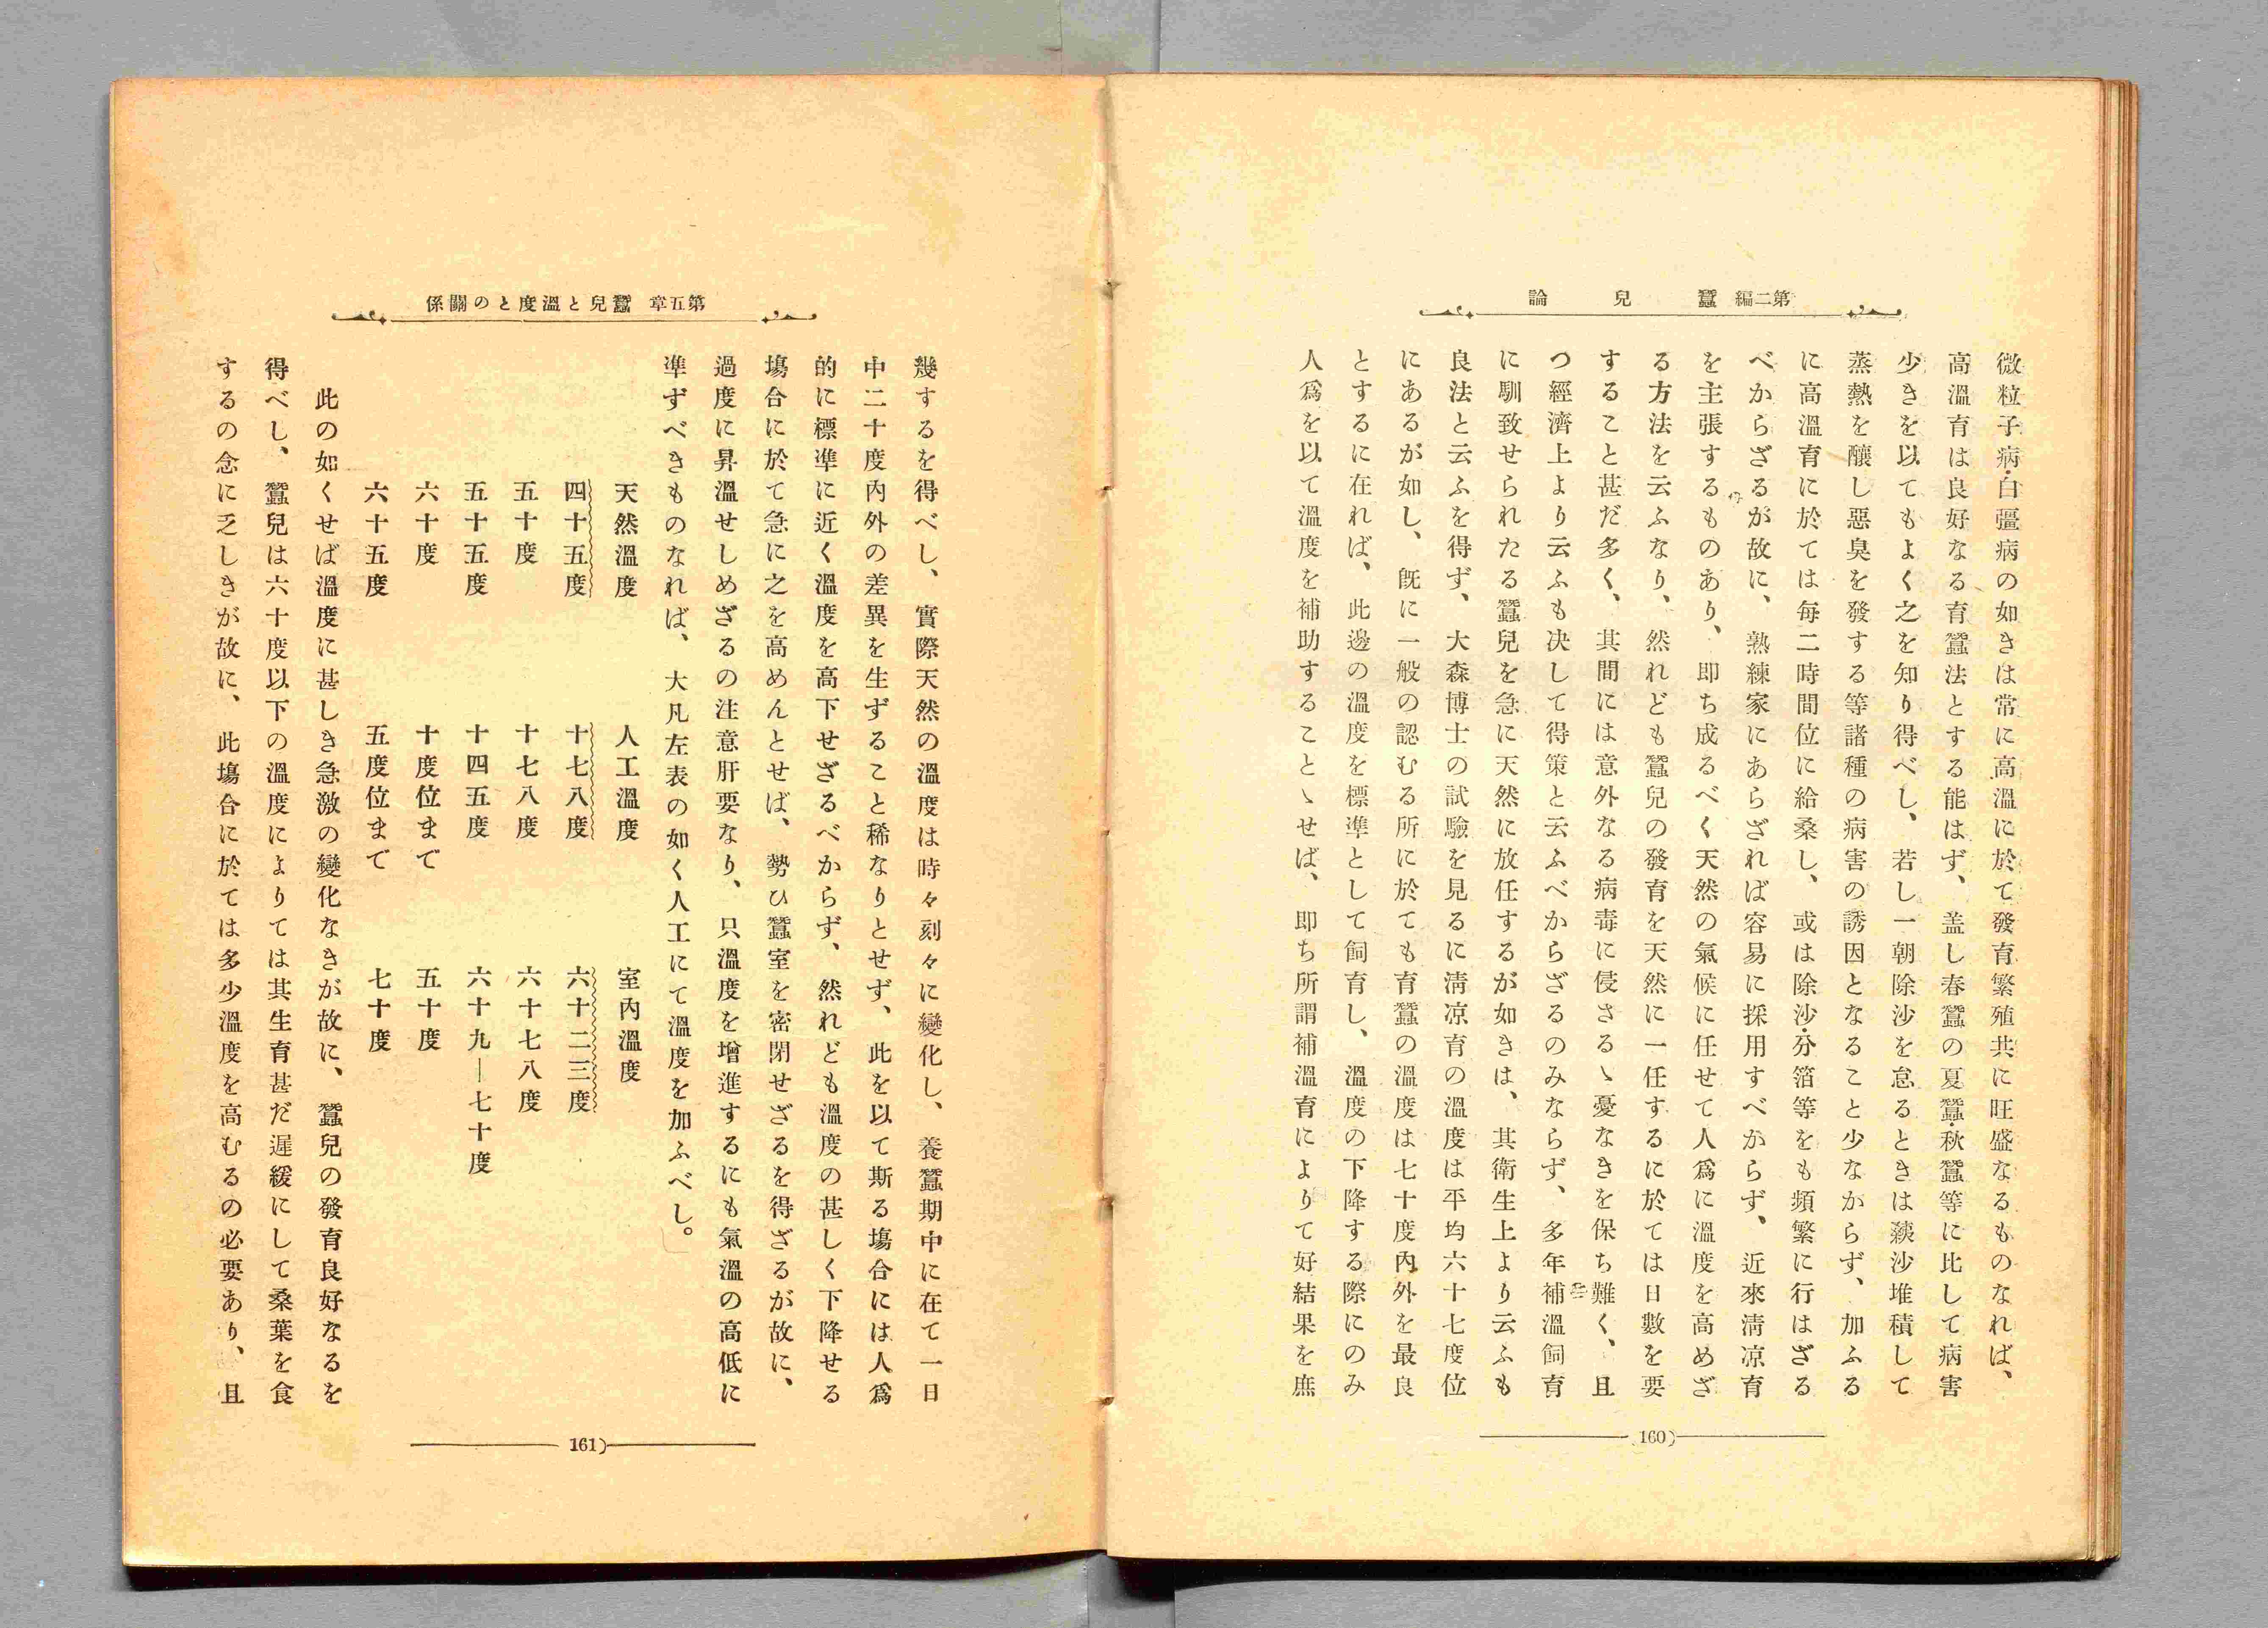 第二編　蠶兒論
微粒子病・白彊病の如きは常に高溫に於て發育繁殖共に旺盛なるものなれば、
高溫育は良好なる育蠶法とする能はず、蓋し春蠶の夏蠶・秋蠶等に比して病害
少きを以てもよく之を知り得べし、若し一朝除沙を怠るときは蘝沙堆積して
蒸熱を釀し惡臭を發する等諸種の病害の誘因となること少なからず、加ふる
に高溫育に於ては每二時間位に給桑し、或は除沙・分箔等をも頻繁に行はざる
べからざるが故に、熟練家にあらざれば容易に採用すべからず、近來淸凉育
を主張するものあり、即ち成るべく天然の氣候に任せて人爲に溫度を高めざ
る方法を云ふなり、然れども蠶兒の發育を天然に一任するに於ては日數を要
すること甚だ多く、其間には意外なる病毒に侵さるヽ憂なきを保ち難く、且
つ經濟上より云ふも决して得策と云ふべからざるのみならず、多年補溫飼育
に馴致せられたる蠶兒を急に天然に放任するが如きは、其衛生上より云ふも
良法と云ふを得ず、大森博士の試驗を見るに淸凉育の溫度は平均六十七度位
にあるが如し、旣に一般の認むる所に於ても育蠶の溫度は七十度內外を最良
とするに在れば、此邊の溫度を標準として飼育し、溫度の下降する際にのみ
人爲を以て溫度を補助することヽせば、即ち所謂補溫育によりて好結果を庶
160)
第五章　蠶兒と溫度との關係
幾するを得べし、實際天然の溫度は時々刻々に變化し、養蠶期中に在て一日
中二十度內外の差異を生ずること稀なりとせず、此を以て斯る塲合には人爲
的に標準に近く溫度を高下せざるべからず、然れども溫度の甚しく下降せる
塲合に於て急に之を高めんとせば、勢ひ蠶室を密閉せざるを得ざるが故に、
過度に昇溫せしめざるの注意肝要なり、只溫度を增進するにも氣溫の高低に
準ずべきものなれば、大凡左表の如く人工にて溫度を加ふべし。
天然溫度　人工溫度　室內溫度
四十五度　十七八度　六十二三度
五十度　十七八度　六十七八度
五十五度　十四五度　六十九―七十度
六十度　十度位まで　五十度
六十五度　五度位まで　七十度
此の如くせば溫度に甚しき急激の變化なきが故に、蠶兒の發育良好なるを
得べし、蠶兒は六十度以下の溫度によりては其生育甚だ遲緩にして桑葉を食
するの念に乏しきが故に、此塲合に於ては多少溫度を高むるの必要あり、且
161)